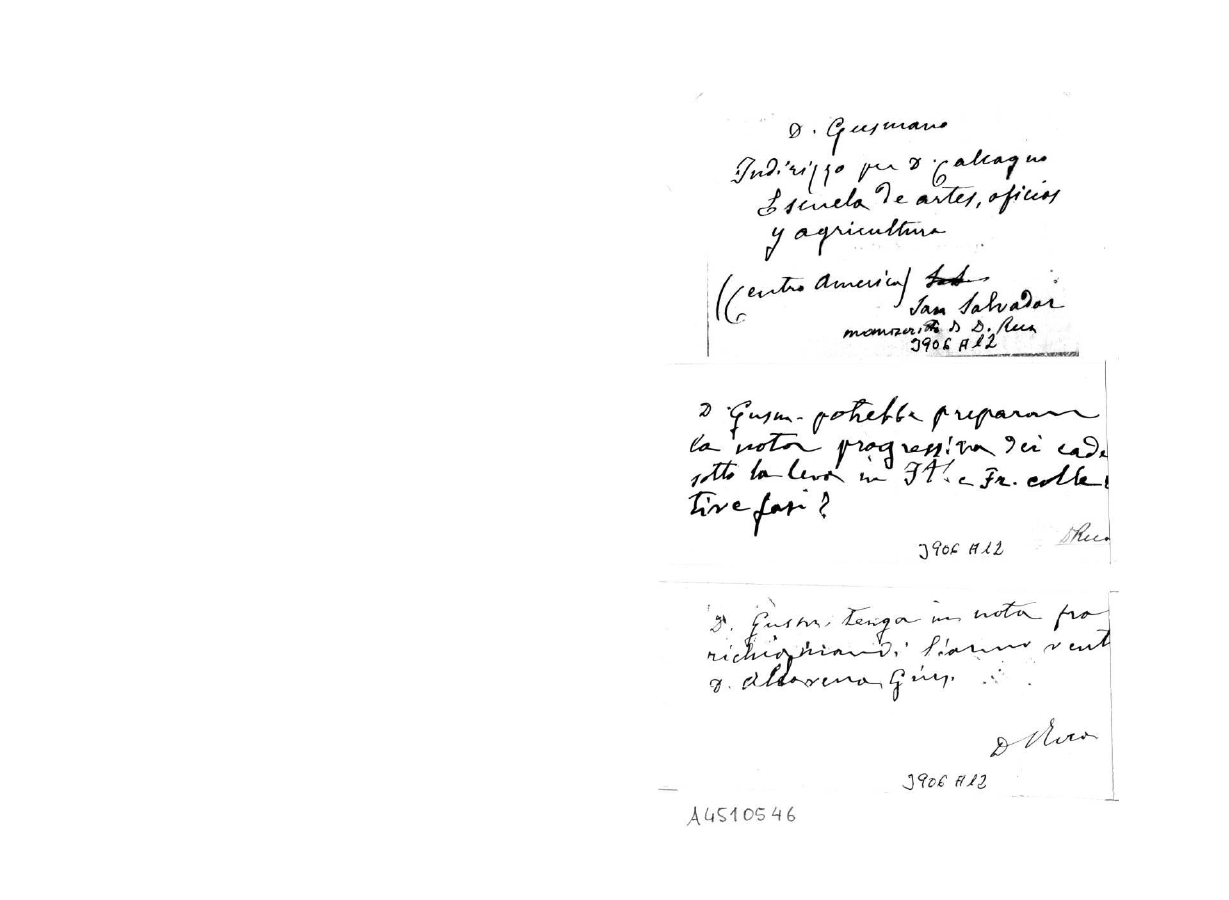 D. Gusmano
Indirizzo per D. Calcagno
Escuela de artes, oficios
y agricultura
(Centro America)
San Salvador
manoscritto D D. Rua
3906 A12
D Gusm. potrebbe preparare
la nota progressiva dei cade
sotto la leva in It. e Fr. colle r
tive fasi?
3906 A12 DRua
D. Gusm. tenga in nota fra
l'anno vent
D. Giu.
D Rua
3906 A12
A4510546